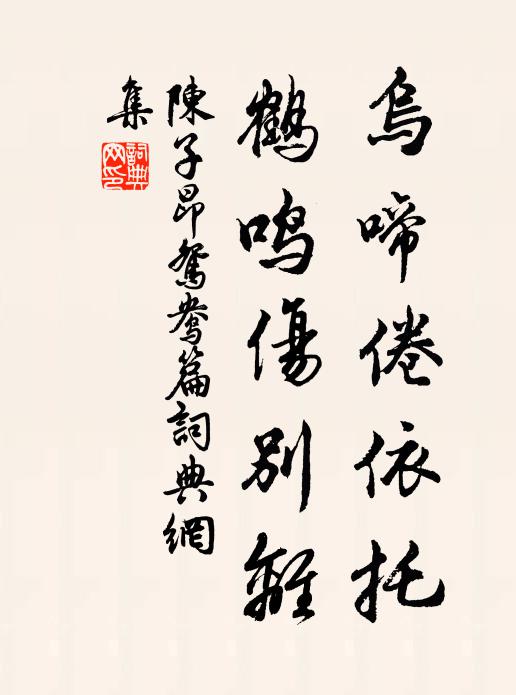 烏啼倦依托
鶴鳴傷別離
陳子昂鴛鴦篇詞典網
集
詞典网印